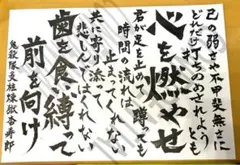 己の弱さや不甲斐無さに
どんだけ打ちのめされようとも
心を燃やせ
君が足を止めて蹲っても
時間の流れは
止まってくれない
共に寄り添って
悲しんではくれない
歯を食い縛って
前を向け
鬼殺隊炎柱煉獄杏寿郎